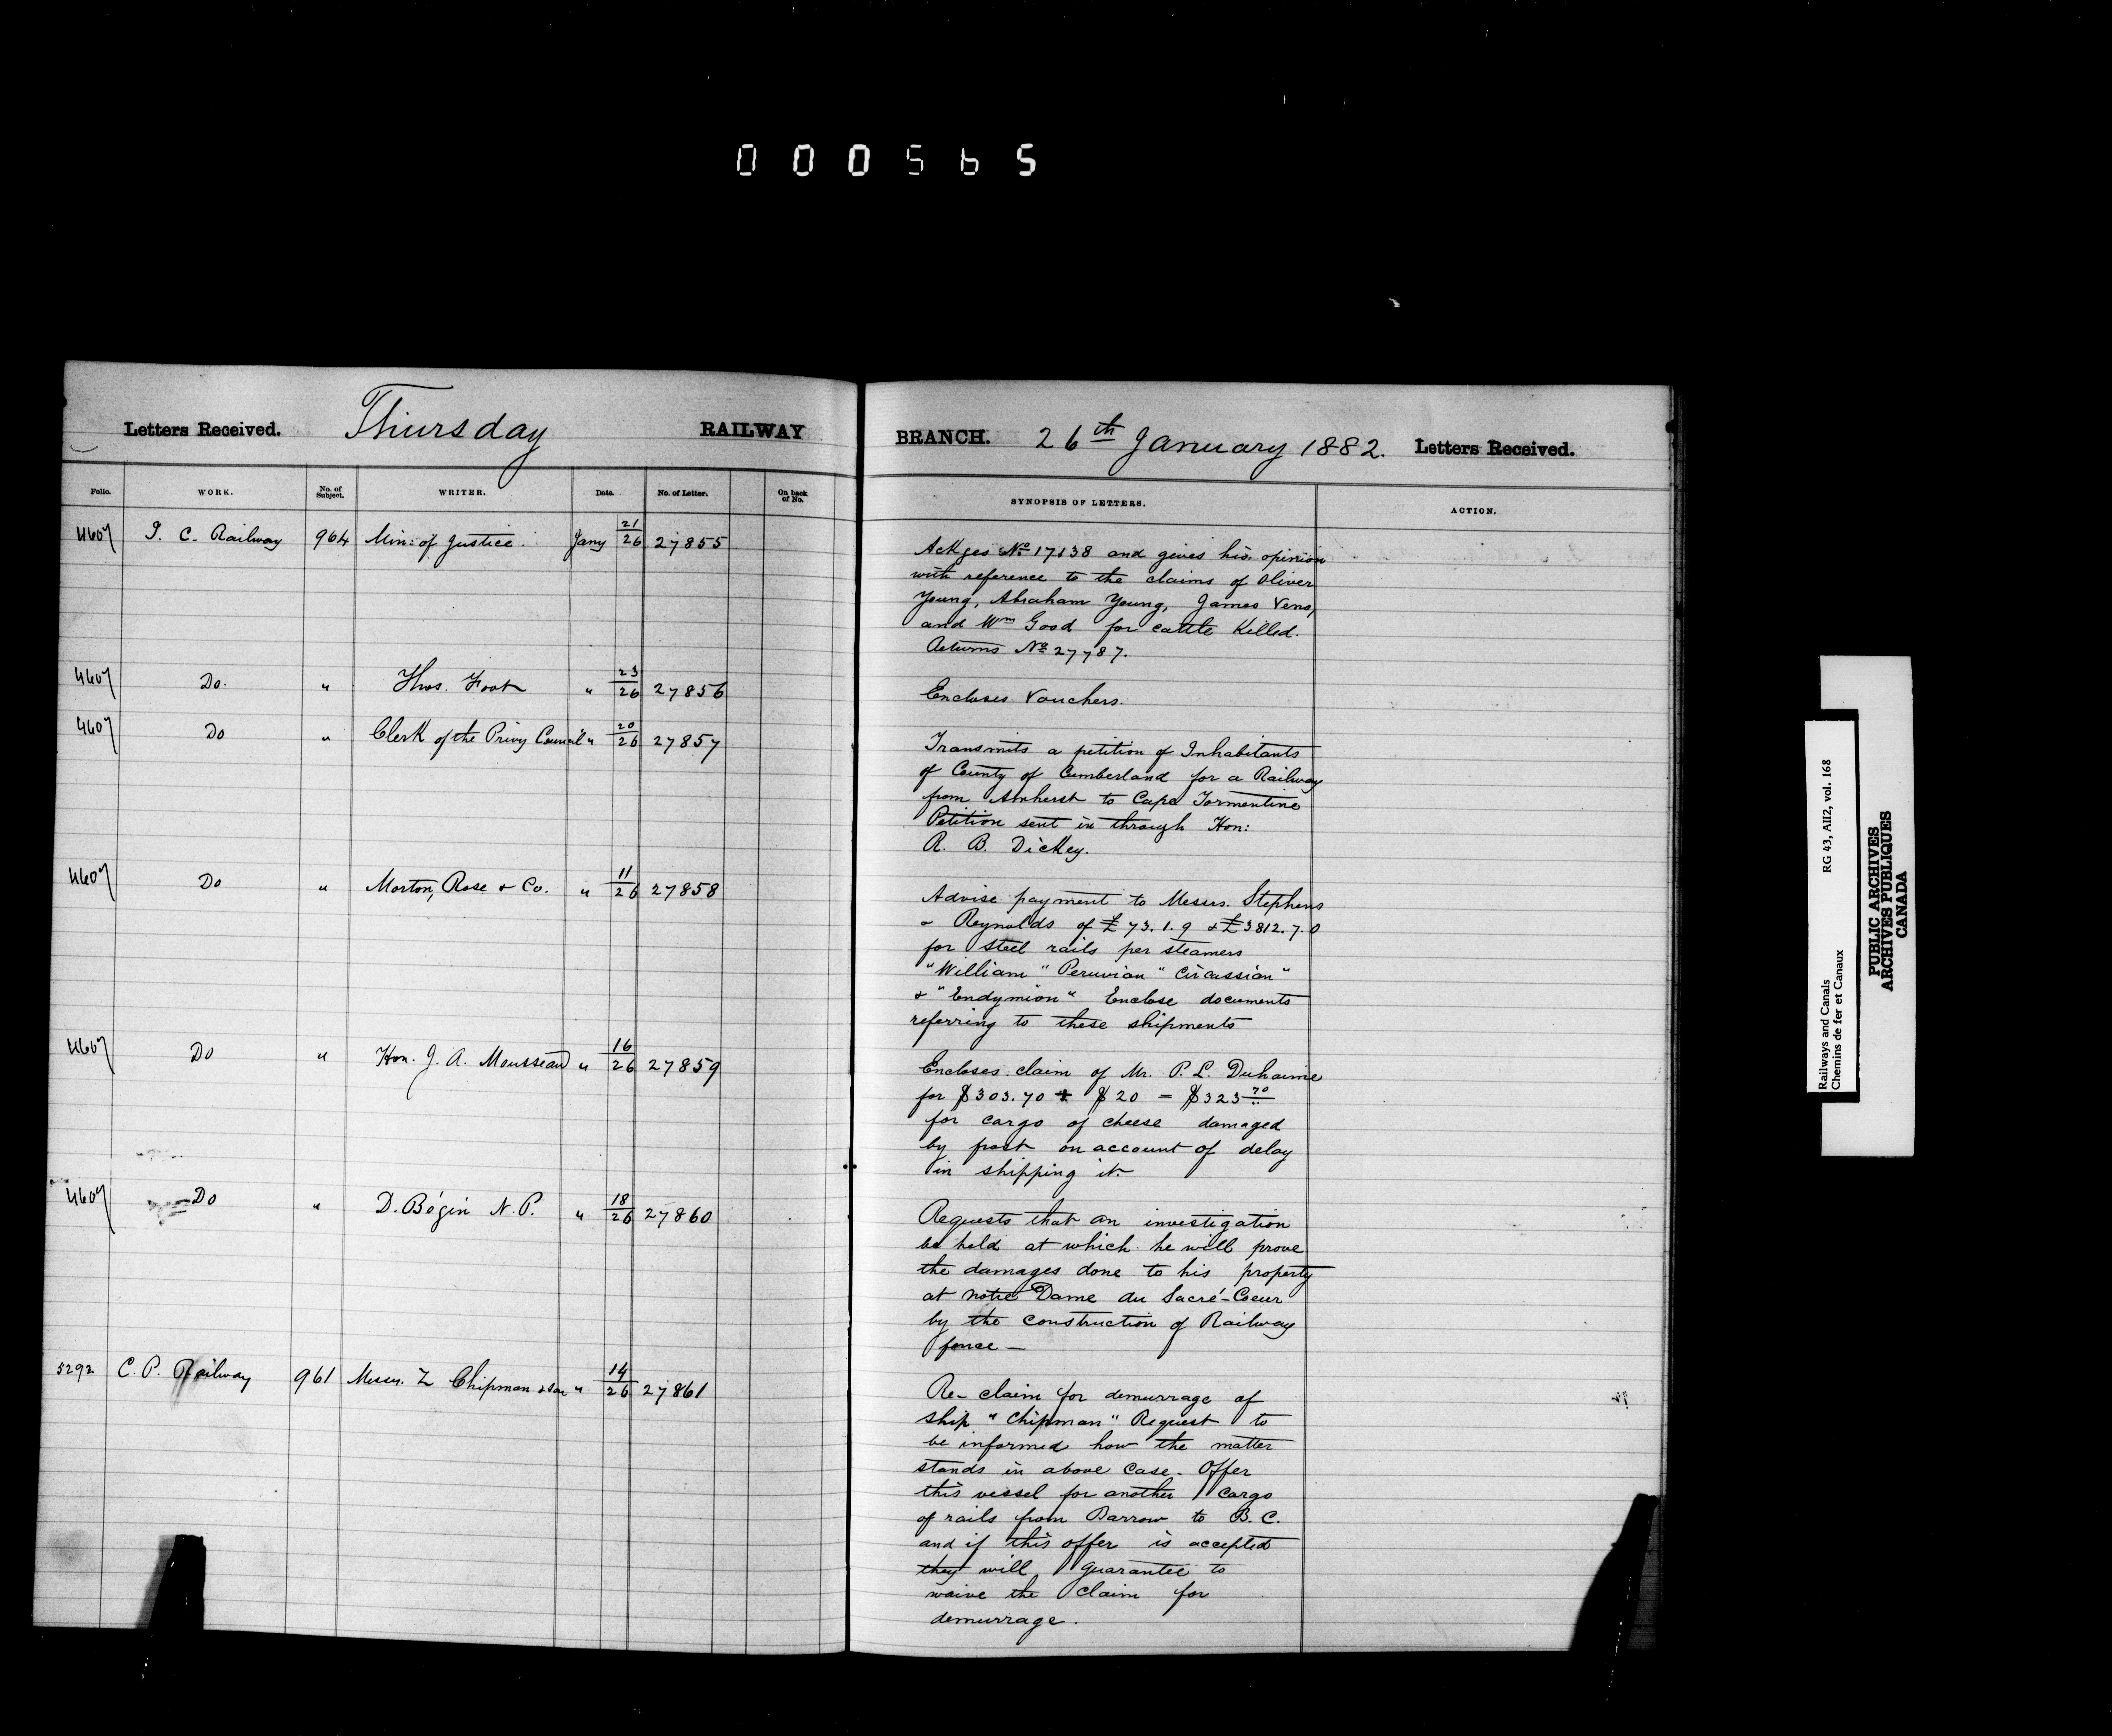 000565
Letters Received. Thursday RAILWAY
BRANCH. 26th January 1882. Letters Received.
Folio. WORK. No. of Subject. WRITER. Date. No. of Letter. On back of No.
SYNOPSIS OF LETTERS. ACTION.
4607 I. C. Railway 964 Min: of Justice. Jany 21/26 27855
Ackges No 17138 and gives his opinion
with reference to the claims of Oliver
Young, Abraham Young, James Veno,
and Wm Good for cattle killed.
Returns No 27787.
4607 Do. " Thos. Foot " 23/26 27856
Encloses Vouchers.
4607 Do " Clerk of the Privy Council " 20/26 27857
Transmits a petition of Inhabitants
of County of Cumberland for a Railway
from Amherst to Cape Tormentine
Petition sent in through Hon:
R. B. Dickey.
4607 Do " Morton, Rose & Co. " 11/26 27858
Advise payment to Messrs. Stephens
& Reynolds of £73.1.9 & £3812.7.0
for steel rails per steamers
"William" Peruvian "Circassian"
& "Endymion" Enclose documents
referring to these shipments
4607 Do " Hon. J. A. Mousseau " 16/26 27859
Encloses claim of Mr. P. L. Duhaime
for $303.70 + $20 = $323 70
for cargo of cheese damaged
by frost on account of delay
in shipping it.
4607 Do " D. Bégin N. P. " 18/26 27860
Requests that an investigation
be held at which he will prove
the damages done to his property
at Notre Dame du Sacré-Coeur
by the construction of Railway
fence —
5292 C. P. Railway 961 Messrs. Z Chipman & Son " 14/26 27861
Re- claim for demurrage of
ship "Chipman" Request to
be informed how the matter
stands in above case. Offer
this vessel for another cargo
of rails from Barrow to B. C.
and if this offer is accepted
they will guarantee to
waive the claim for
demurrage.
Railways and Canals RG 43, AII2, vol. 168
Chemins de fer et Canaux
PUBLIC ARCHIVES
ARCHIVES PUBLIQUES
CANADA